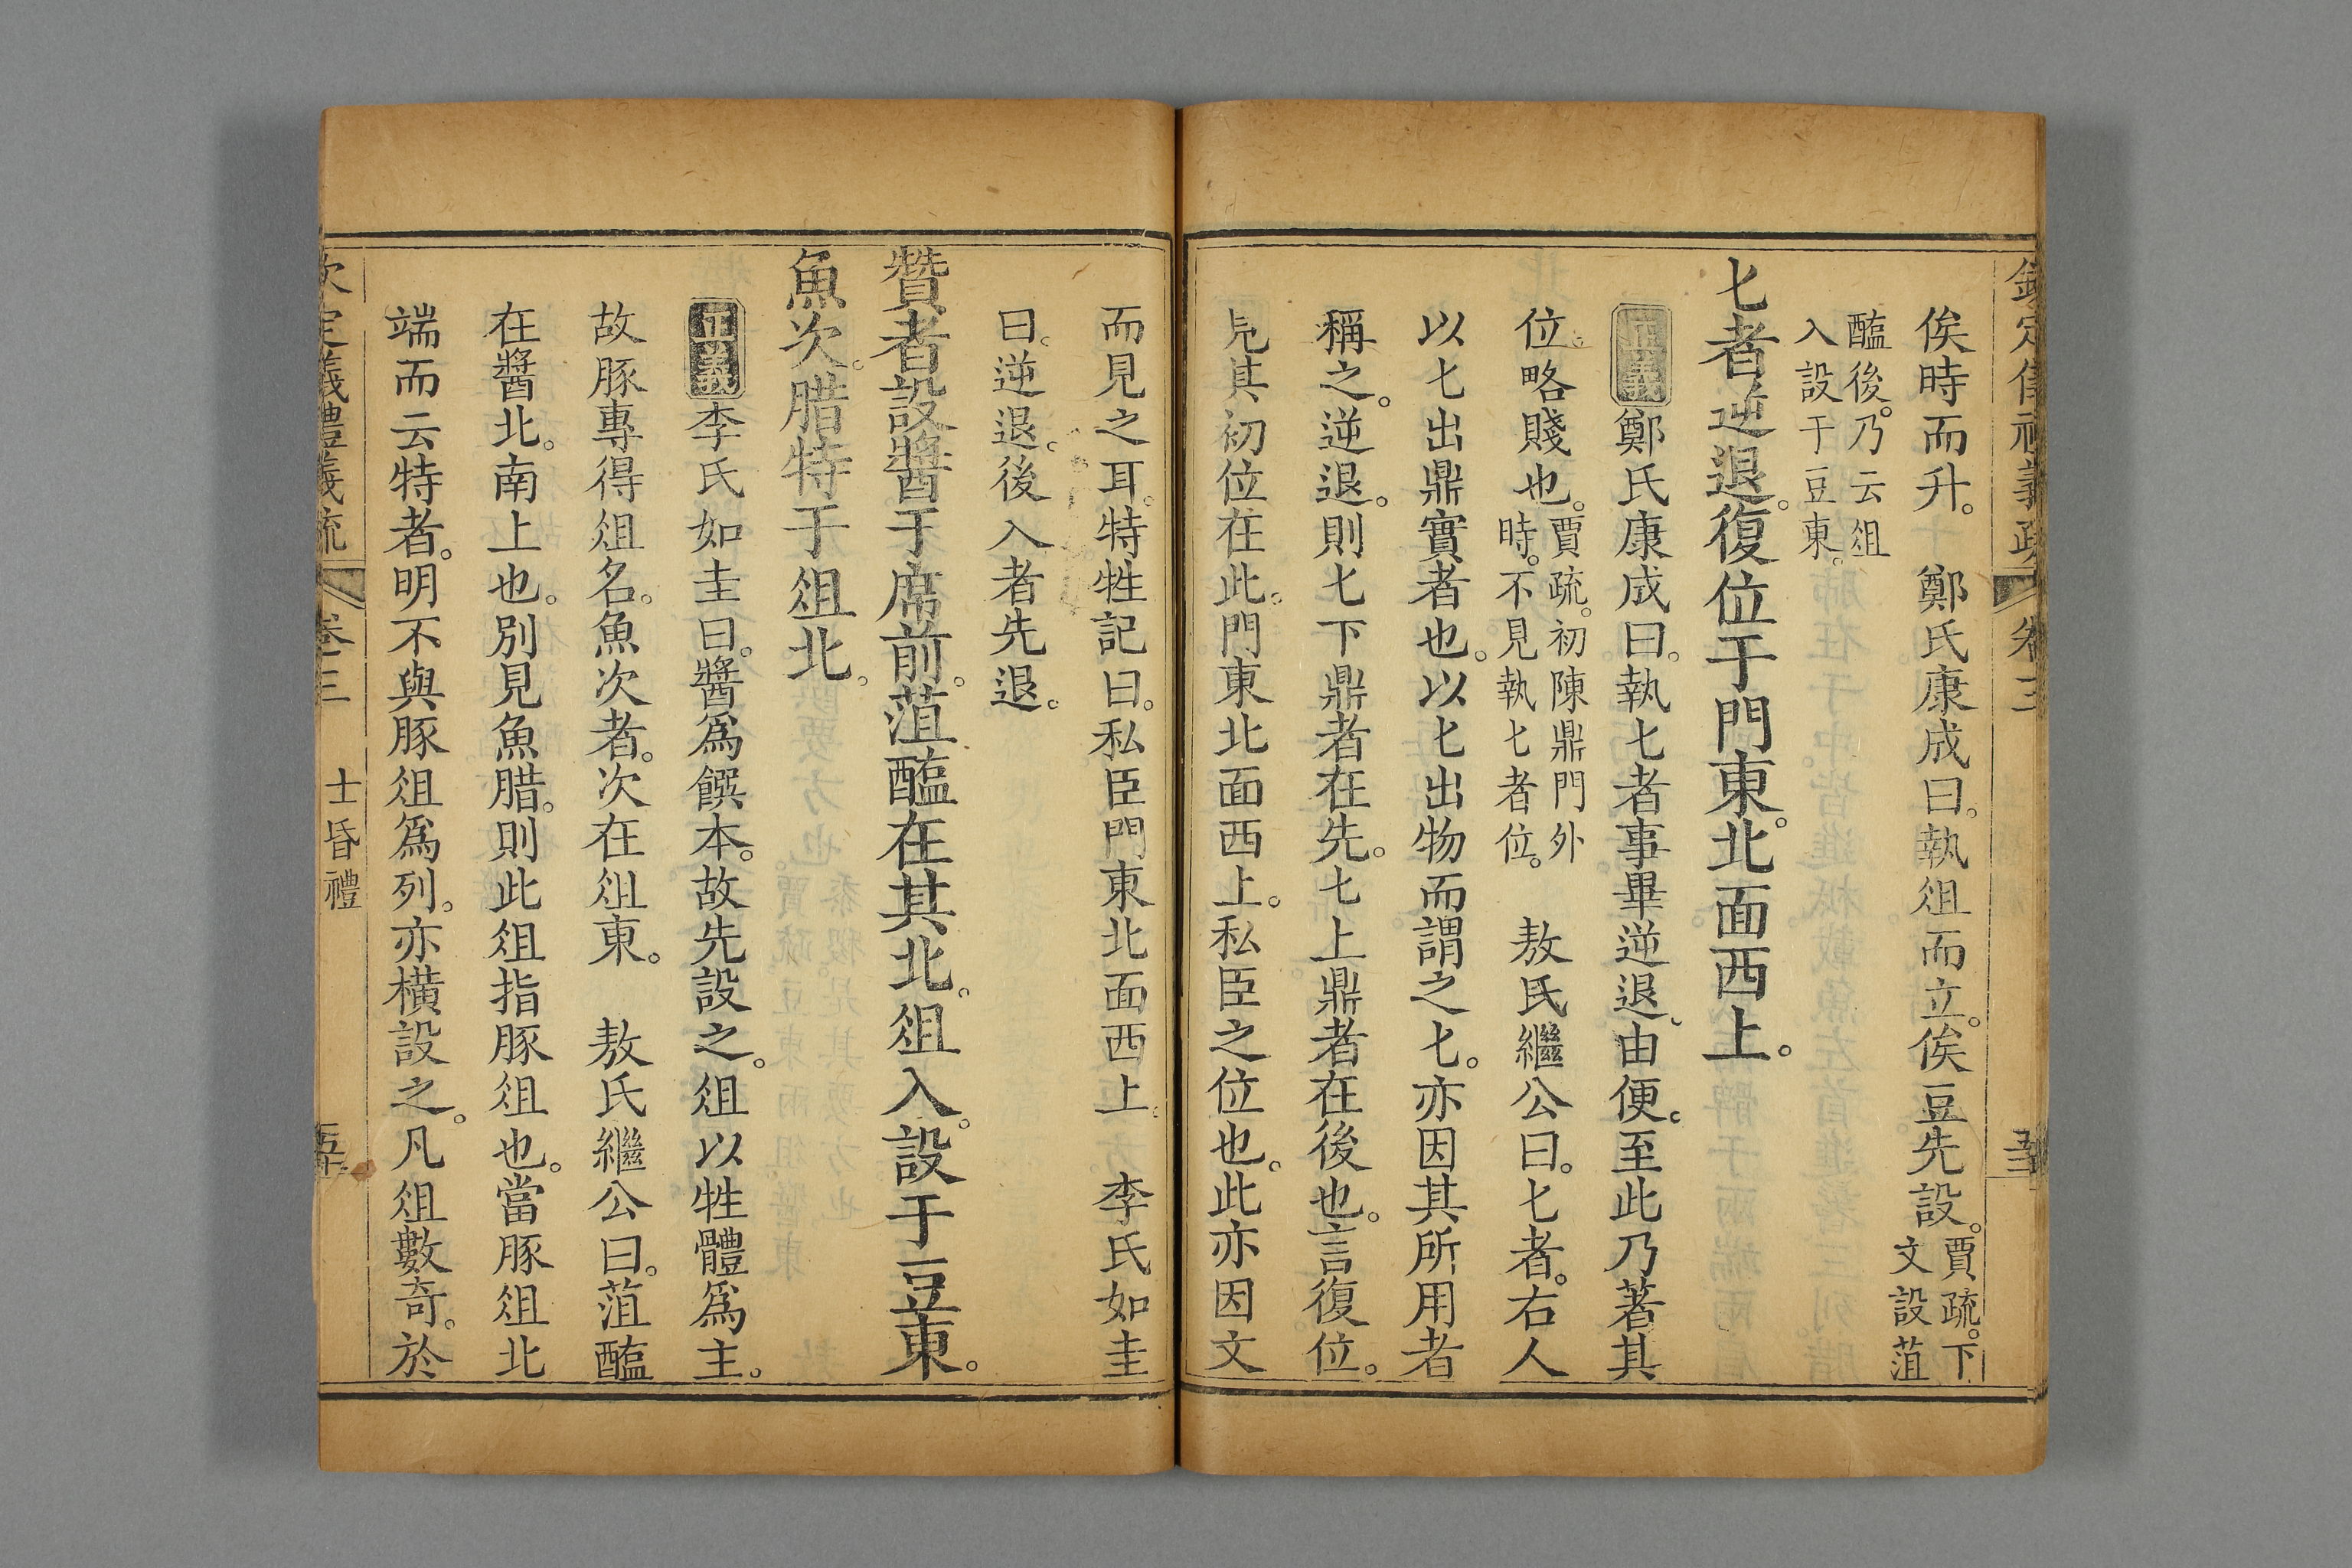 俟時而升。 鄭氏康成曰。執俎而立。俟豆先設。賈疏。下文設菹
醢後。乃云俎入設于豆東。
匕者逆退。復位于門東。北面西上。
正義鄭氏康成曰。執匕者事畢逆退。由便。至此乃著其
位。略賤也。賈疏。初陳鼎門外時。不見執匕者位。 敖氏繼公曰。匕者。右人
以匕出鼎實者也。以匕出物而謂之匕。亦因其所用者
稱之。逆退。則匕下鼎者在先。匕上鼎者在後也。言復位。
見其初位在此。門東北面西上。私臣之位也。此亦因文
而見之耳。特牲記曰。私臣門東北面西上。 李氏如圭
曰。逆退。後入者先退。
贊者設醬于席前。菹醢在其北。俎入。設于豆東。
魚次。腊特于俎北。
正義李氏如圭曰。醬爲饌本。故先設之。俎以牲體爲主。
故豚專得俎名。魚次者。次在俎東。 敖氏繼公曰。菹醢
在醬北。南上也。別見魚腊。則此俎指豚俎也。當豚俎北
端而云特者。明不與豚俎爲列。亦橫設之。凡俎數奇。於
欽定儀禮義疏 卷三 士昏禮